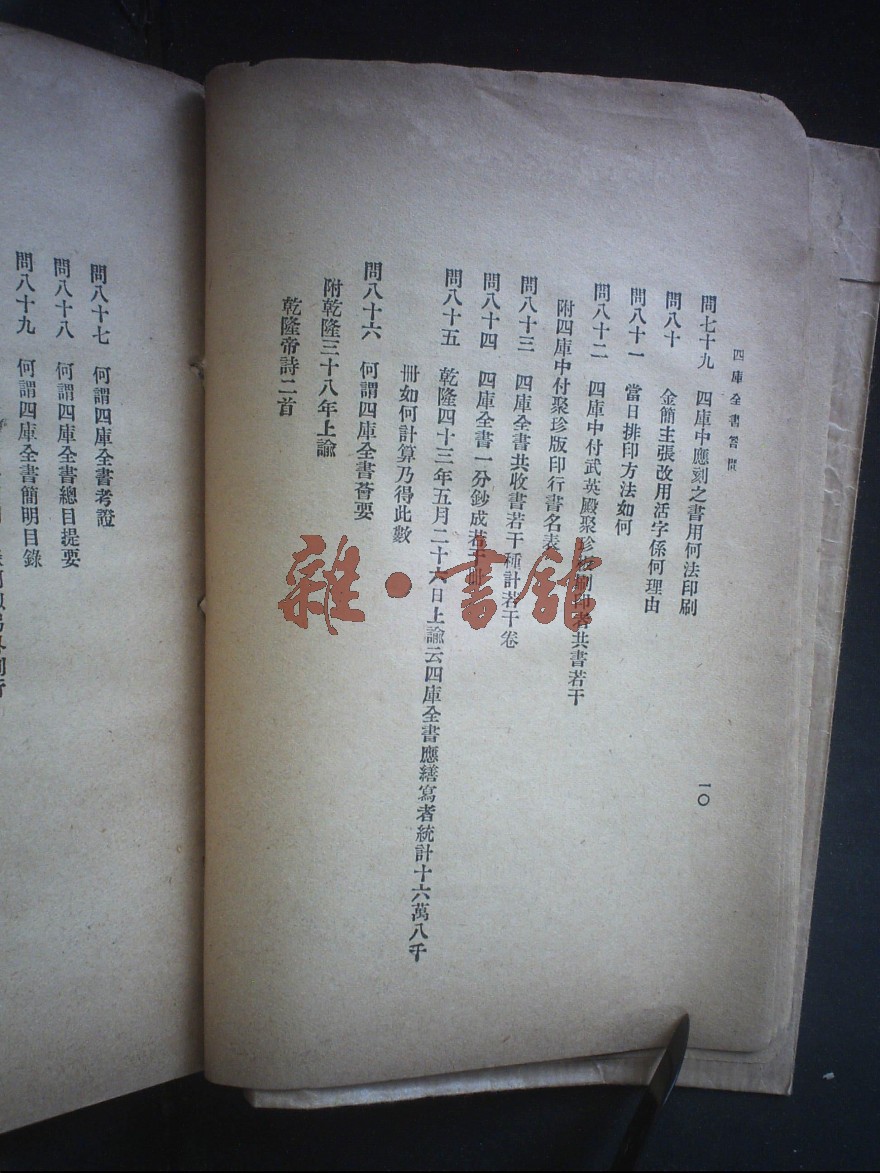 四庫全書答問
一〇
問七十九 四庫中應刻之書用何法印刷
問八十 金簡主張改用活字係何理由
問八十一 當日排印方法如何
問八十二 四庫中付武英殿聚珍版刷印者共書若干
附四庫中付聚珍版印行書名表
問八十三 四庫全書共收書若干種計若干卷
問八十四 四庫全書一分鈔成若干冊
問八十五 乾隆四十三年五月二十六日上諭云四庫全書應繕寫者統計十六萬八千
冊如何計算乃得此數
問八十六 何謂四庫全書薈要
附乾隆三十八年上諭
乾隆帝詩二首
問八十七 何謂四庫全書考證
問八十八 何謂四庫全書總目提要
問八十九 何謂四庫全書簡明目錄
雜·書館